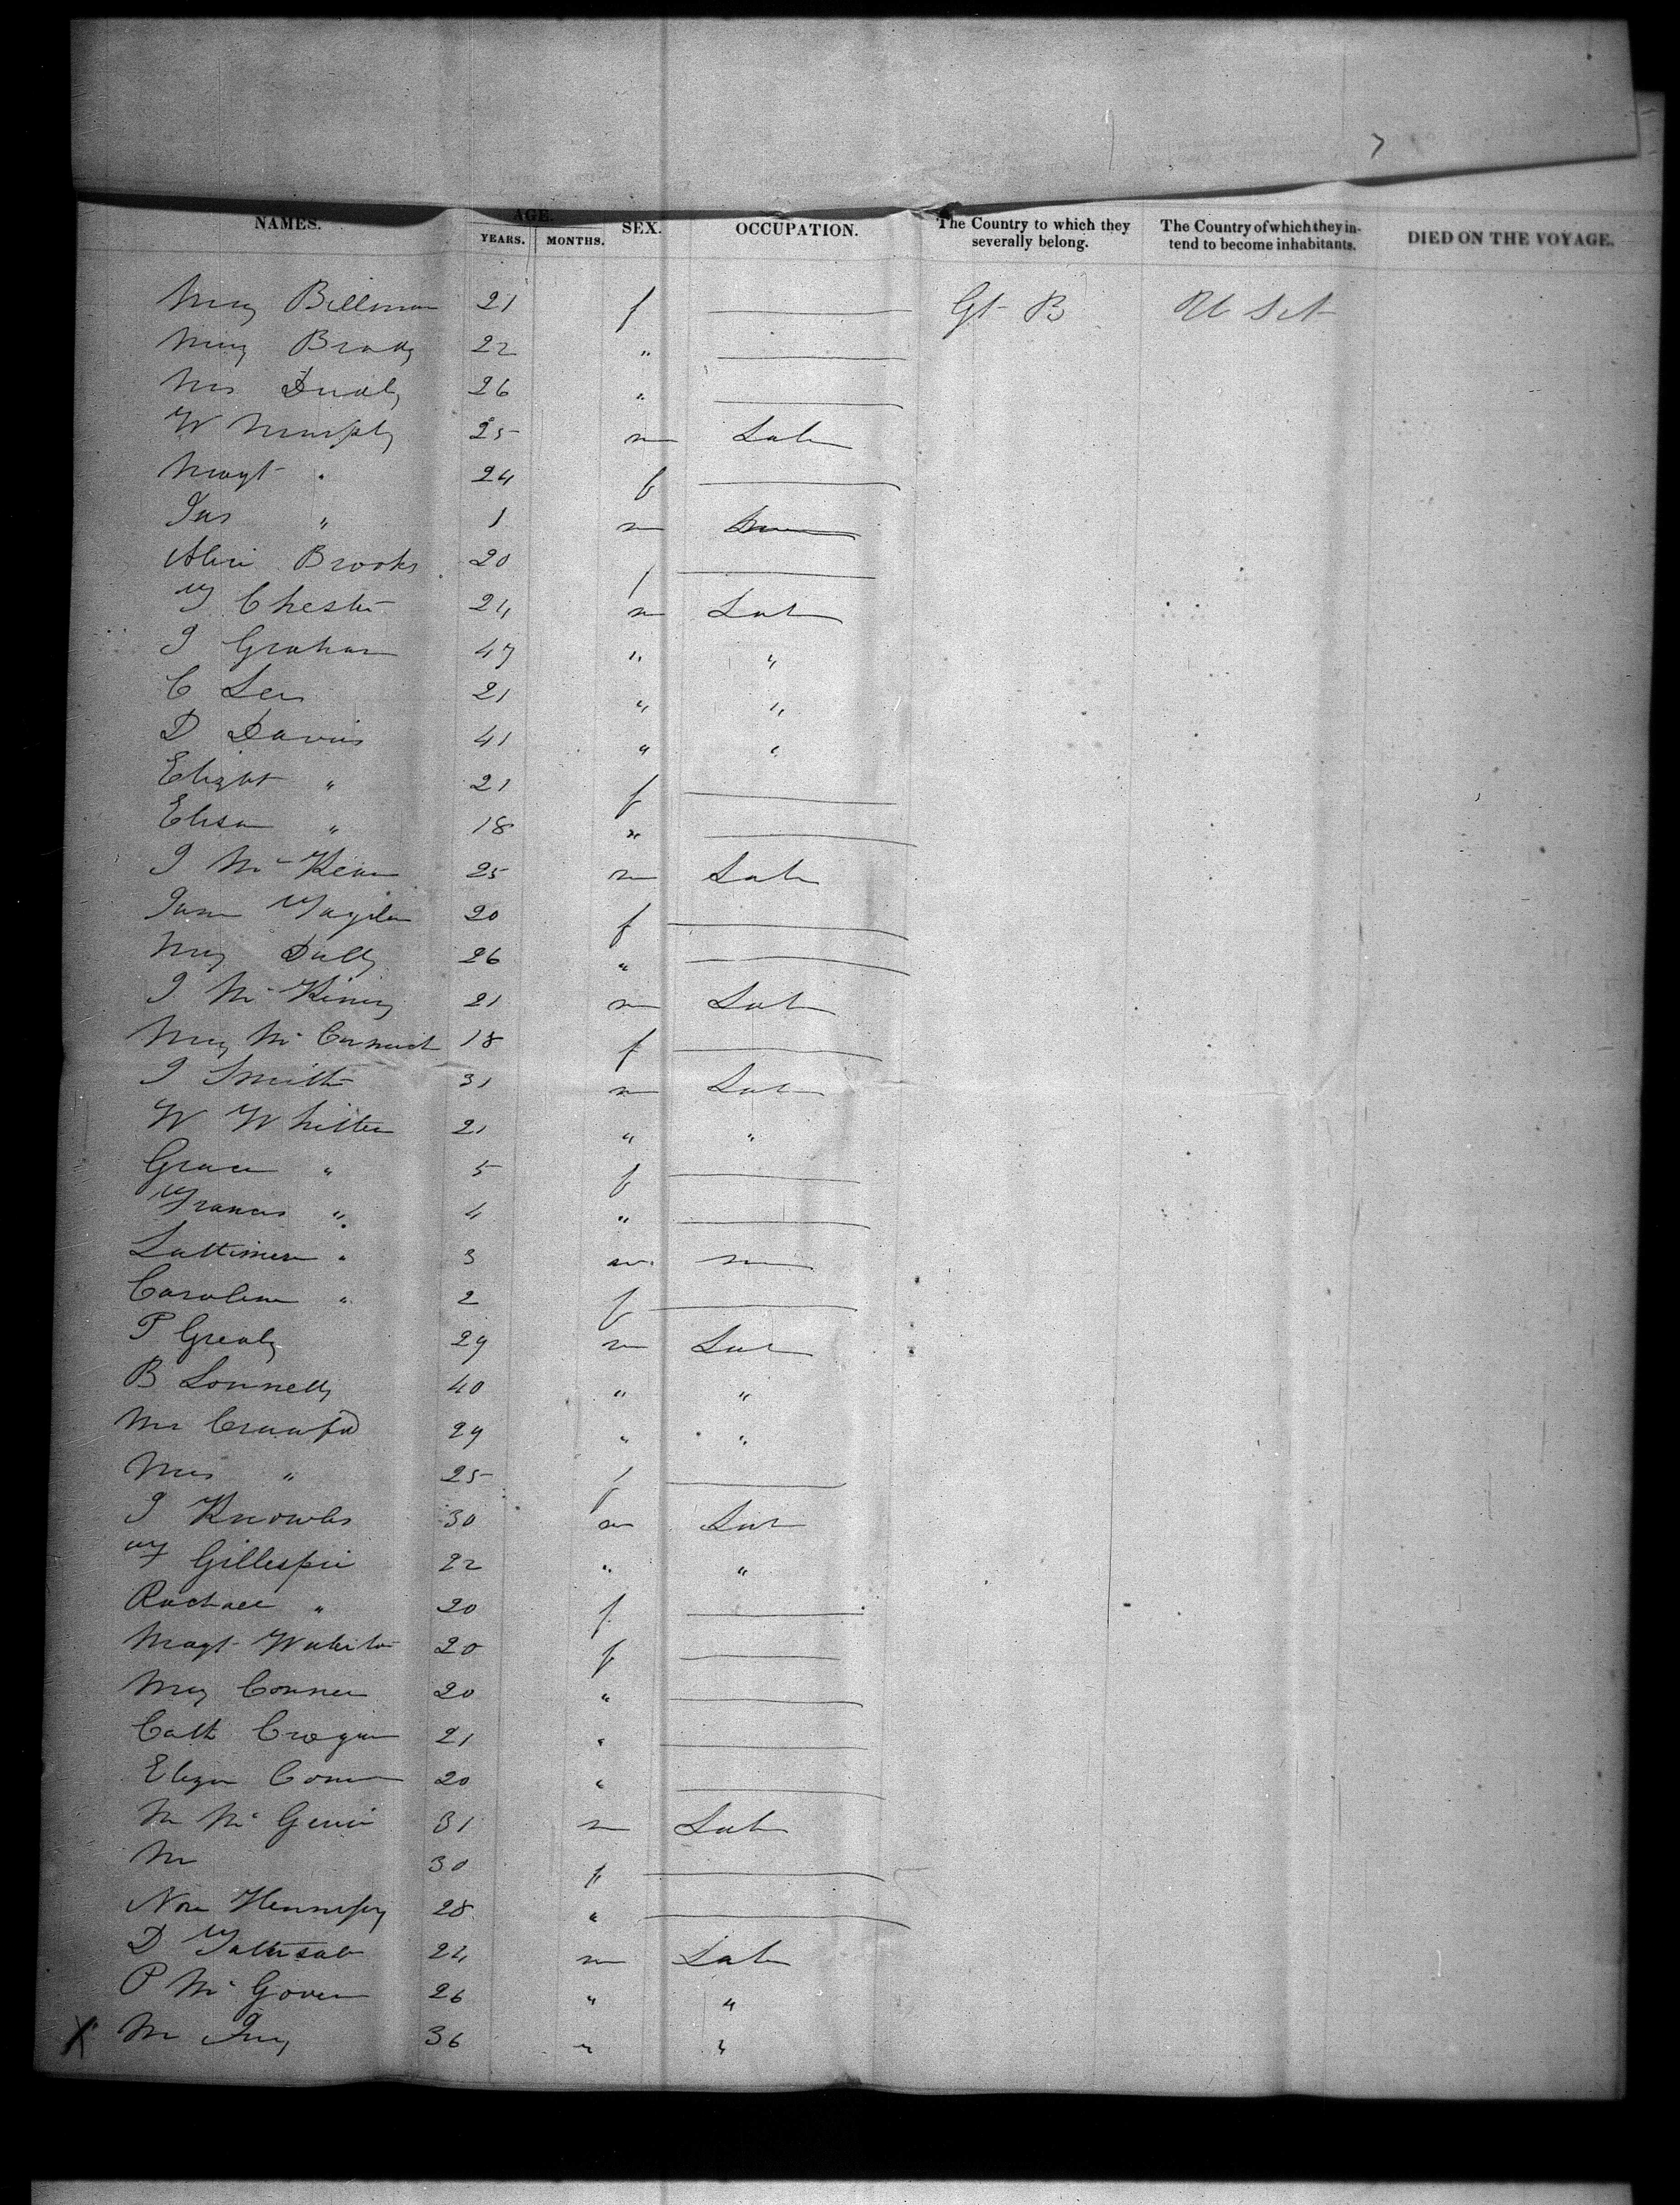 NAMES. AGE. YEARS. MONTHS. SEX. OCCUPATION. The Country to which they severally belong. The Country of which they intend to become inhabitants. DIED ON THE VOYAGE.
Mary Billman 21 f Gt B U S A
Mary Brady 22 "
Mrs 26 "
W Murphy 25 m Lab
Magt " 24 f
Jas " 1 m
Alice Brooks 20 f
F Chester 24 m Lab
J Graham 47 " "
C Lee 21 " "
D Davis 41 " "
Elizabt " 21 f
Elisa " 18 "
J McKean 25 m Lab
Jane 20 f
Mary Dully 26 "
J McKinney 21 m Lab
Mary McCormick 18 f
J Smith 31 m Lab
W Whitten 21 " "
Grace " 5 f
Frances " 4 "
Lattimer " 3 m
Caroline " 2 f
P Grealy 29 m Lab
B Connelly 40 " "
Mr Crawfd 29 " "
Mrs " 25 f
J Knowles 30 m Lab
Wm Gillespie 22 " "
Rachael " 20 f
Magt 20 f
Mary Conner 20 "
Cath Crogan 21 "
Eliza 20 "
M 31 m Lab
M 30 f
Nora Hennessy 28 "
D 24 m Lab
P McGovern 26 " "
X M 36 " "